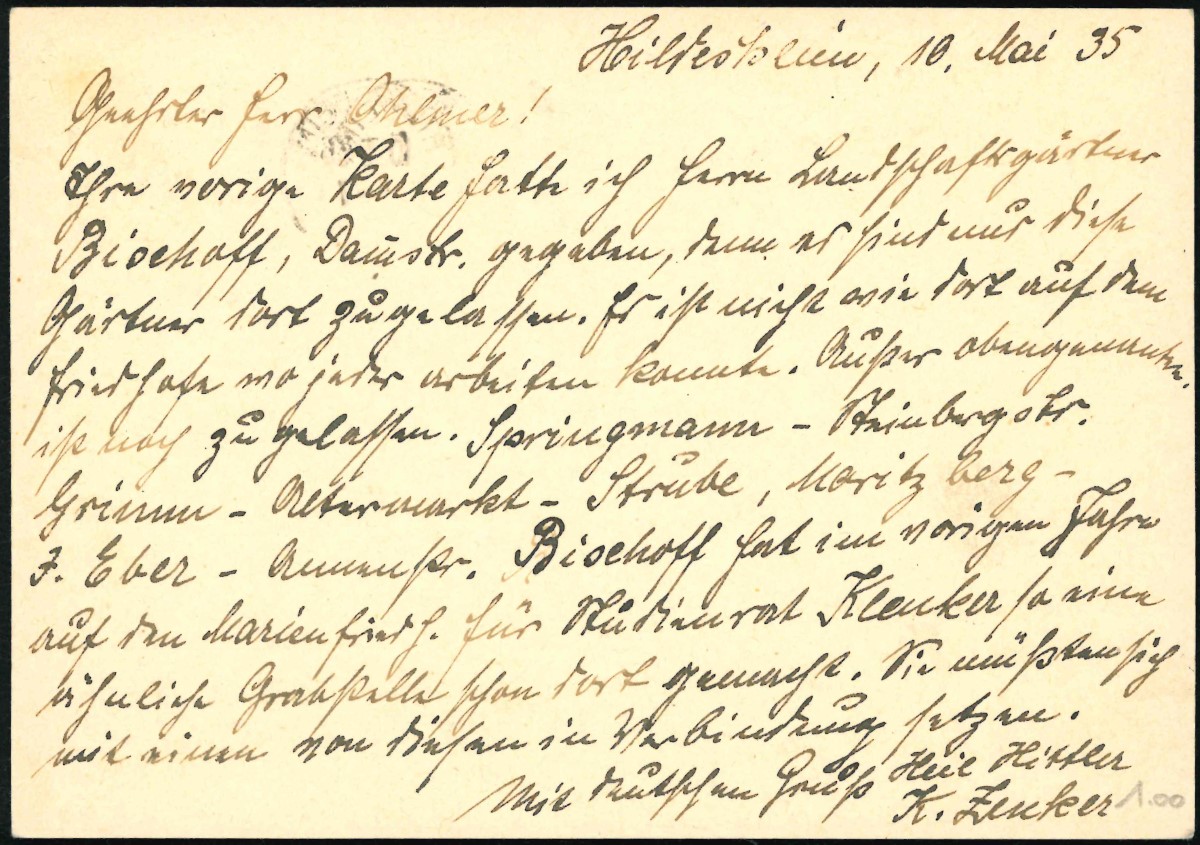 Hildesheim, 10. Mai 35
Geehrter Herr Ohlmer!
Ihre vorige Karte hatte ich Herrn Landschaftsgärtner
Bischoff, Dammstr. gegeben, denn es sind nur diese
Gärtner dort zugelassen. Es ist nicht wie dort auf dem
Friedhofe wo jeder arbeiten konnte. Außer obengenannten.
ist noch zugelassen. Springmann - Steinbergstr.
Grimm - Altermarkt - Strube, Moritzberg -
J. Eber - Annenstr. Bischoff hat im vorigen Jahre
auf den Marienfriedh. für Studienrat Klenker so eine
ähnliche Grabstelle schon dort gemacht. Sie müßten sich
mit einen von diesen in Verbindung setzen.
Mit deutschen Gruß Heil Hittler
K. Zenker
1.00